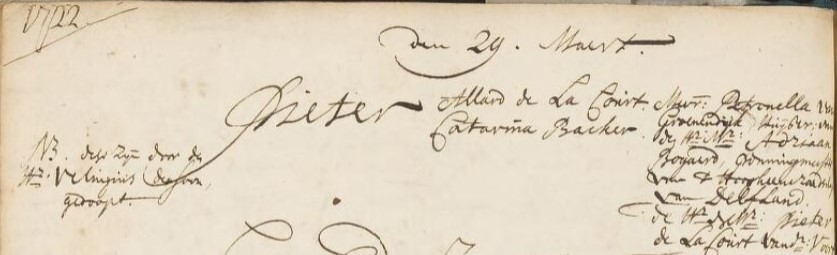 1722
den 29. Maert.
Pieter
Allard de La Court.
Catarina Backer
Mevr: Petronella Van
Groenendijk Huijsvr: van
de Hr: Mr: Adriaan
Bogaerd, Penningmeester
van t Hoogheemraadts
van Delfland.
de Hr: Pieter
de La Court vandr: Voort
NB. dese Zijn door de
Hr.
gedoopt.